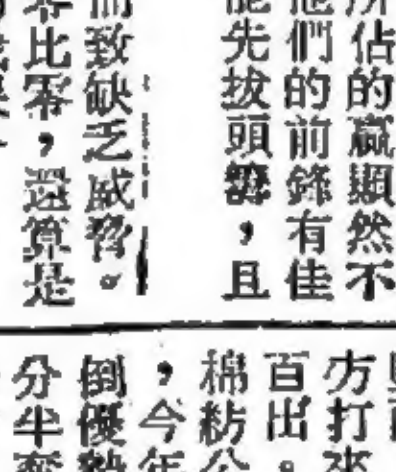 所佔的贏顯然不
他們的前鋒有佳
能先拔頭籌，且
而致缺乏威脅。
零比零，還算是
方打來
百出。
棉紡公
，今年
倒優勢
分半奪